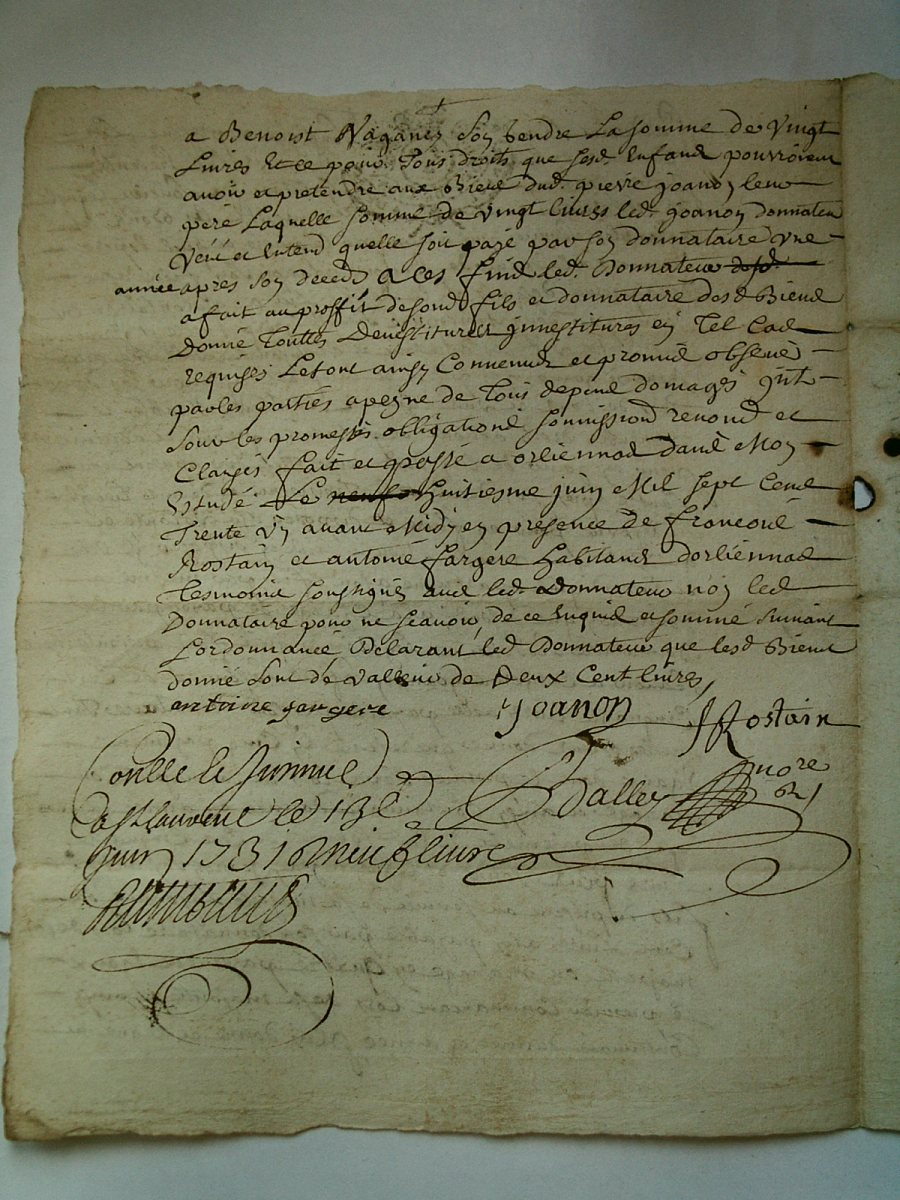 a Benoist Vaganes son gendre La somme de vingt
Livres Et ce pour Tous droits que sesd. Enfans pourroient
avoir et pretendre aux Biens dud. pierre joanon leur
pere Laquelle somme de vingt livres led. joanon donnateur
Veut et Entend quelle soit payé par son donnataire une
année apres son deceds a ces fins led. Donnateur desd.
a fait au proffit de sond. fils et donnataire desd. Biens
donné Touttes Devestitures jnvestitures en Tel Cas
requises Lesont ainsy Convenus et promis observé
par les parties a peyne de Tous depens domages jnt
sour les promesses obligations soumissions renons et
Clauses fait et passé a orliennas dans Mon
Estude Le neufe huitiesme juin Mil sept Cens
Trente un avant Midy en presence de francois
Rostain et antoine fargere habitans dorliennas
Tesmoins soussignés avec led. donnateur non led
Donnataire pour ne scavoir de ce Enquis et sommé suivant
Lordonnance Declarant led. Donnateur que lesd Biens
donné sont de valleur de deux Cent livres
antoine fargere Joanon J Rostain
a St laurent le 13e Dalley nore
juin 1731 neuf livre